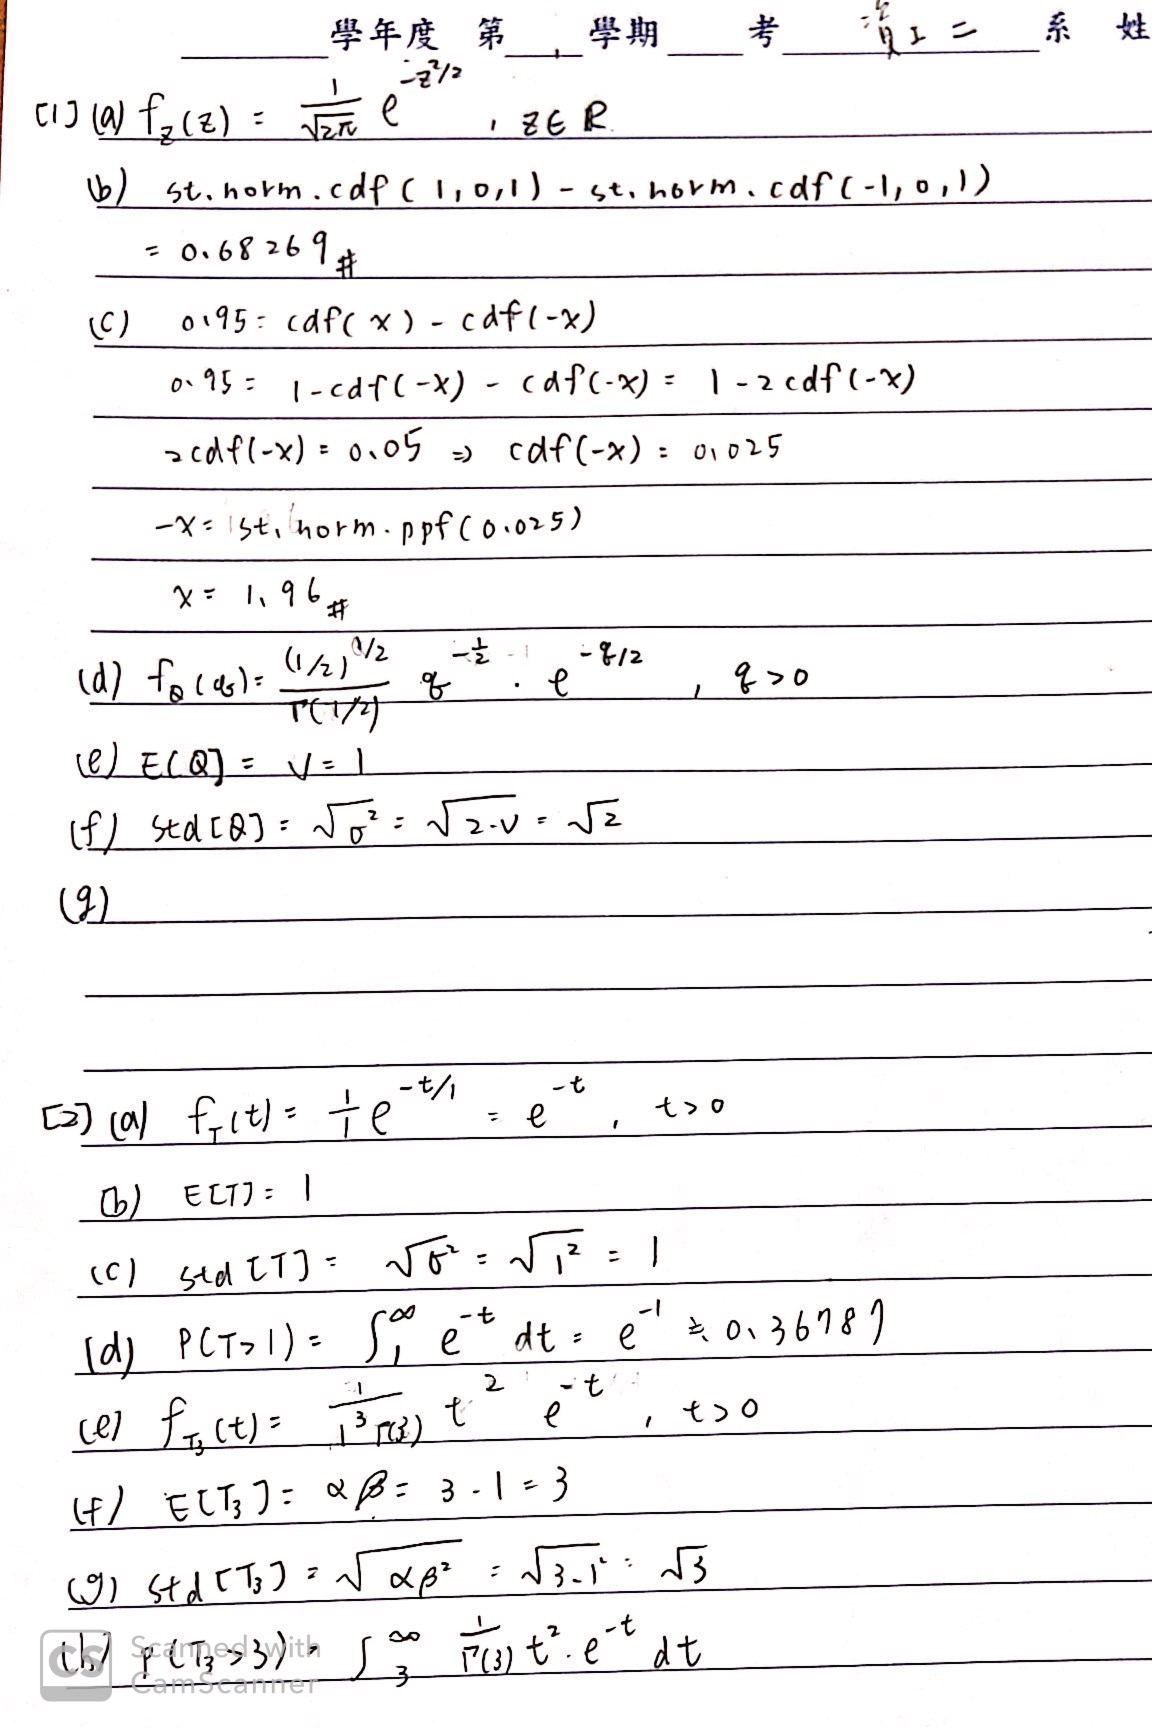 學年度 第 學期 考 資工二 系 姓
[1] (a) f_Z(z) = 1/√2π e^{-z²/2} , z∈R
(b) st.norm.cdf(1,0,1) - st.norm.cdf(-1,0,1)
= 0.68269 #
(c) 0.95 = cdf(x) - cdf(-x)
0.95 = 1-cdf(-x) - cdf(-x) = 1-2cdf(-x)
2cdf(-x) = 0.05 ⇒ cdf(-x) = 0.025
-x = st.norm.ppf(0.025)
x = 1.96 #
(d) f_Q(q) = (1/2)^{1/2}/Γ(1/2) q^{-1/2} · e^{-q/2} , q>0
(e) E[Q] = ν = 1
(f) std[Q] = √σ² = √2·ν = √2
(g)
[2] (a) f_T(t) = 1/1 e^{-t/1} = e^{-t} , t>0
(b) E[T] = 1
(c) std[T] = √σ² = √1² = 1
(d) P(T>1) = ∫₁^∞ e^{-t} dt = e^{-1} ≒ 0.36787
(e) f_{T₃}(t) = 1/1³Γ(3) t² e^{-t} , t>0
(f) E[T₃] = αβ = 3·1 = 3
(g) std[T₃] = √αβ² = √3·1² = √3
(h) P(T₃>3) = ∫₃^∞ 1/Γ(3) t²·e^{-t} dt
CS Scanned with
CamScanner